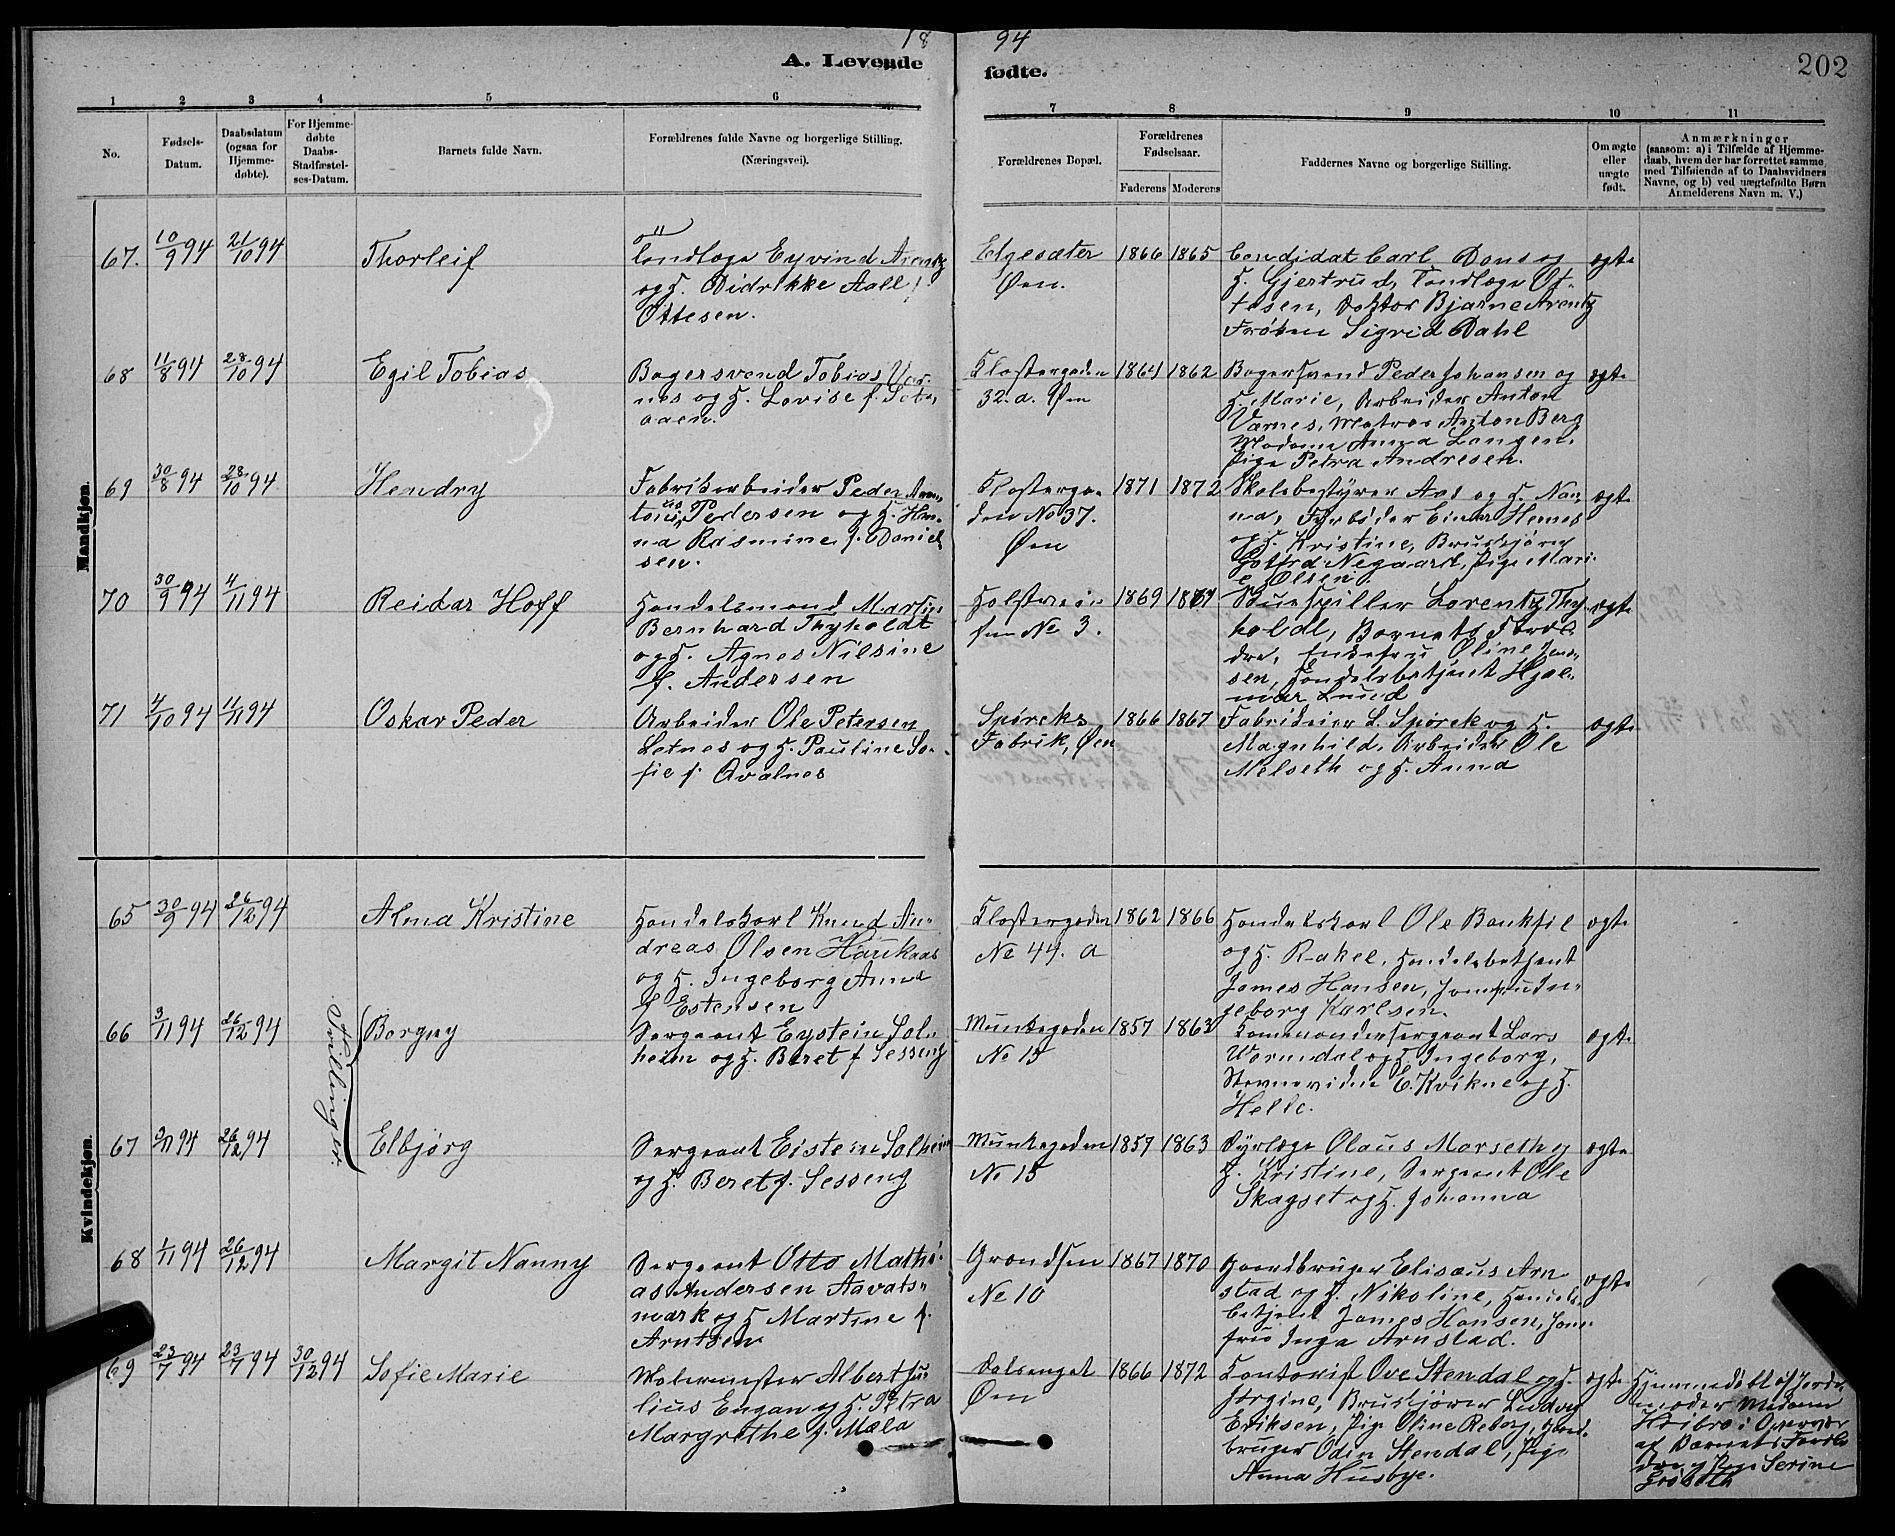 18 94
A. Levende fødte.
202
1 2 3 4 5 6 7 8 9 10 11
No.
Fødsels-Datum.
Daabsdatum (ogsaa for Hjemme-døbte).
For Hjemme-døbte Daabs-Stadfæstel-ses-Datum.
Barnets fulde Navn.
Forældrenes fulde Navne og borgerlige Stilling. (Næringsvei).
Forældrenes Bopæl.
Forældrenes Fødselsaar.
Faderens Moderens
Faddernes Navne og borgerlige Stilling.
Om ægte eller uægte født.
Anmærkninger
(saasom: a) i Tilfælde af Hjemme-
daab, hvem der har forrettet samme,
med Tilføiende af to Daabsvidners
Navne, og b) ved uægtefødte Børn
Anmelderens Navn m. V.)
Mandkjøn.
67. 10/9 94 21/10 94 Thorleif
Tandlæge Eyvind Arentz
og H. Didrikke Aall f.
Ottesen.
Elgesæter
Øen.
1866 1865
Candidat Carl Dons og
H. Gjertrud, Tandlæge Ot-
tesen, Doktor Bjarne Arentz
Frøken Sigrid Dahl
ægte
68 11/8 94 28/10 94 Egil Tobias
Bagersvend Tobias Vær-
nes og H. Lovise f. Tob-
aaen.
Klostergaden
32. a. Øen
1864 1862
Bagersvend Peder Johansen og
H. Marie, Arbeider Anton
Værnes, Matros Anton Berg
Madam Anna Langen,
Pige Petra Andresen.
ægte
69 30/8 94 28/10 94 Hendry
Fabrikarbeider Peder An-
tonius Pedersen og H. Han-
na Rasmine f. Daniel-
sen.
Klosterga-
den No 37.
Øen
1871 1872
Skolebestyrer Aas og H. Nan-
na, Fyrbøder Einar Hernes
og H. Kristine, Bruskjører
Gotfrd Negaard, Pige Mari-
e Olsen
ægte
70 30/9 94 4/11 94 Reidar Hoff
Handelsmand Martin
Bernhard Thyholdt
og H. Agnes Nilsine
f. Andersen
No 3.
1869
Skuespiller Lorentz Thy-
holdt, Barnets Foræl-
dre, Enkefru Oline Jen-
sen, Handelsbetjent Hjal-
mar Lund
ægte
71 4/10 94 11/11 94 Oskar Peder
Arbeider Ole Petersen
Letnes og H. Pauline So-
fie f. Qvalnes
Spørcks
Fabrik, Øen
1866 1867
Fabrikeier L. Spørck og H.
Magnhild, Arbeider Ole
Melseth og H. Anna
ægte
Kvindekjøn.
65 30/9 94 26/12 94 Alma Kristine
Handelskarl Knud An-
dreas Olsen Haukaas
og H. Ingeborg Anna
f. Estensen
Klostergaden
No 44. a
1862 1866
Handelskarl Ole Bankfil
og H. Rakel, Handelsbetjent
James Hansen, Jomfru In-
geborg Karlsen.
ægte
Tvillinger.
66 3/11 94 26/12 94 Borgny
Sergeant Eystein Sol-
heim og H. Beret f. Sesseng
Munkegaden
No 15
1857 1863
Kommandersergeant Lars
Wormdal og H. Ingeborg,
Stevnevidne E. Kvikne og H.
Helle.
ægte
67 3/11 94 26/12 94 Elbjørg
Sergeant Eistein Solheim
og H. Beret f. Sesseng
Munkegaden
No 15
1857 1863
Dyrlæge Olaus Morseth og
H. Kristine, Sergeant Ole
Skagset og H. Johanna
ægte
68 1/11 94 26/12 94 Margit Nanny
Sergeant Otto Mathi-
as Andersen Aavats-
mark og H Martine f.
Arntsen
Grandsen
No 10
1867 1870
Gaardbruger Elisæus Arn-
stad og H. Nikoline, Handels-
betjent James Hansen, Jom-
fru Inga Arnstad.
ægte
69 23/7 94 23/7 94 30/12 94 Sofie Marie
Malermester Albert Ju-
lius Engan og H. Petra
Margrethe f. Mæla
Dalsenget
Øen
1866 1872
Kontorist Ove Stendal og H.
Jørgine, Bruskjører Ludvig
Eriksen, Pige Oline Reberg, Gaard-
bruger Odin Stendal, Pige
Anna Husbye.
ægte
Hjemmedøbt af Jorde-
moder Madam
i Overvær
af Barnets Foræl-
dre og Pige Serine